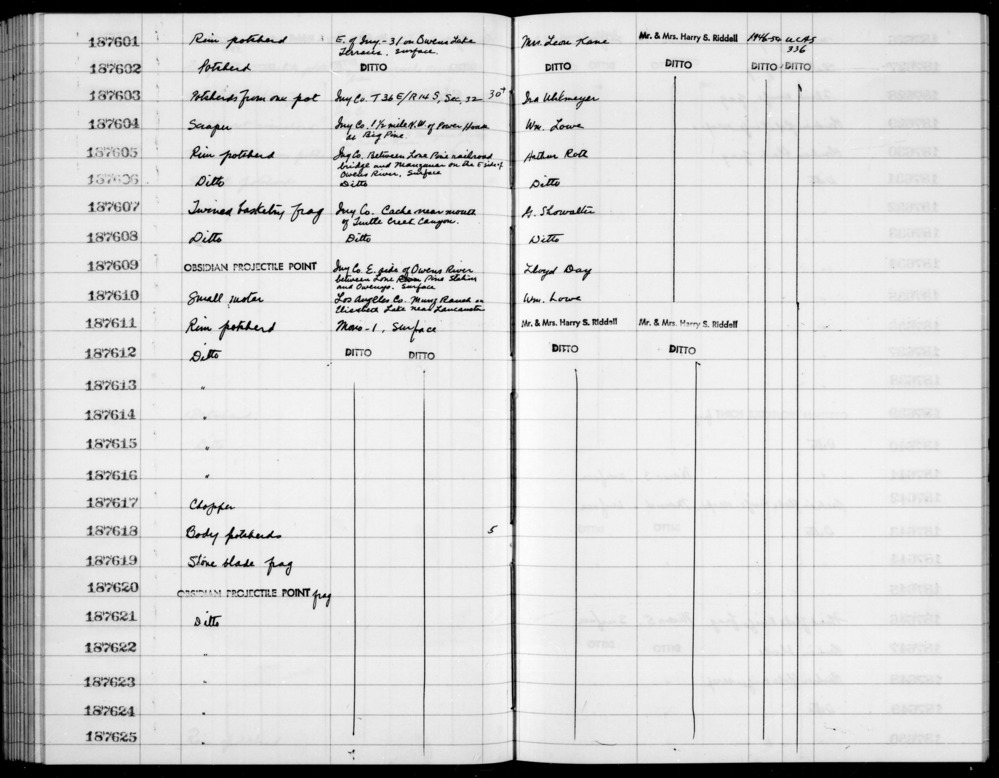 187601 Rim potsherd E. of Iny.-31 on Owens Lake Mrs. Leon Kane Mr. & Mrs. Harry S. Riddell 1946-54 UCAS
Terrain. surface 336
187602 Potsherd DITTO DITTO DITTO DITTO DITTO
187603 Potsherds from one pot Iny Co. T 36 E/R 14 S, Sec, 32 30+ Ira Whitmeyer
187604 Scraper Iny Co. 1 1/2 mile N.W. of Power House Wm. Lowe
at Big Pine.
187605 Rim potsherd Iny Co. Between Lone Pine railroad Arthur Roth
bridge and Manzanar on the E side of
Owens River, Surface
187606 Ditto Ditto Ditto
187607 Twined basketry frag Iny Co. Cache near mouth G. Showalter
of Tuttle Creek Canyon.
187608 Ditto Ditto Ditto
187609 OBSIDIAN PROJECTILE POINT Iny Co. E. side of Owens River Lloyd Day
between Lone Pine Station
and Owenyo. Surface
187610 Small mortar Los Angeles Co. Munz Ranch on Wm. Lowe
Elizabeth Lake near Lancaster
187611 Rim potsherd Mono-1, Surface Mr. & Mrs. Harry S. Riddell Mr. & Mrs. Harry S. Riddell
187612 Ditto DITTO DITTO DITTO DITTO
187613 "
187614 "
187615 "
187616 "
187617 Chopper
187618 Body potsherds 5
187619 Stone blade frag
187620 OBSIDIAN PROJECTILE POINT frag
187621 Ditto
187622 "
187623 "
187624 "
187625 "